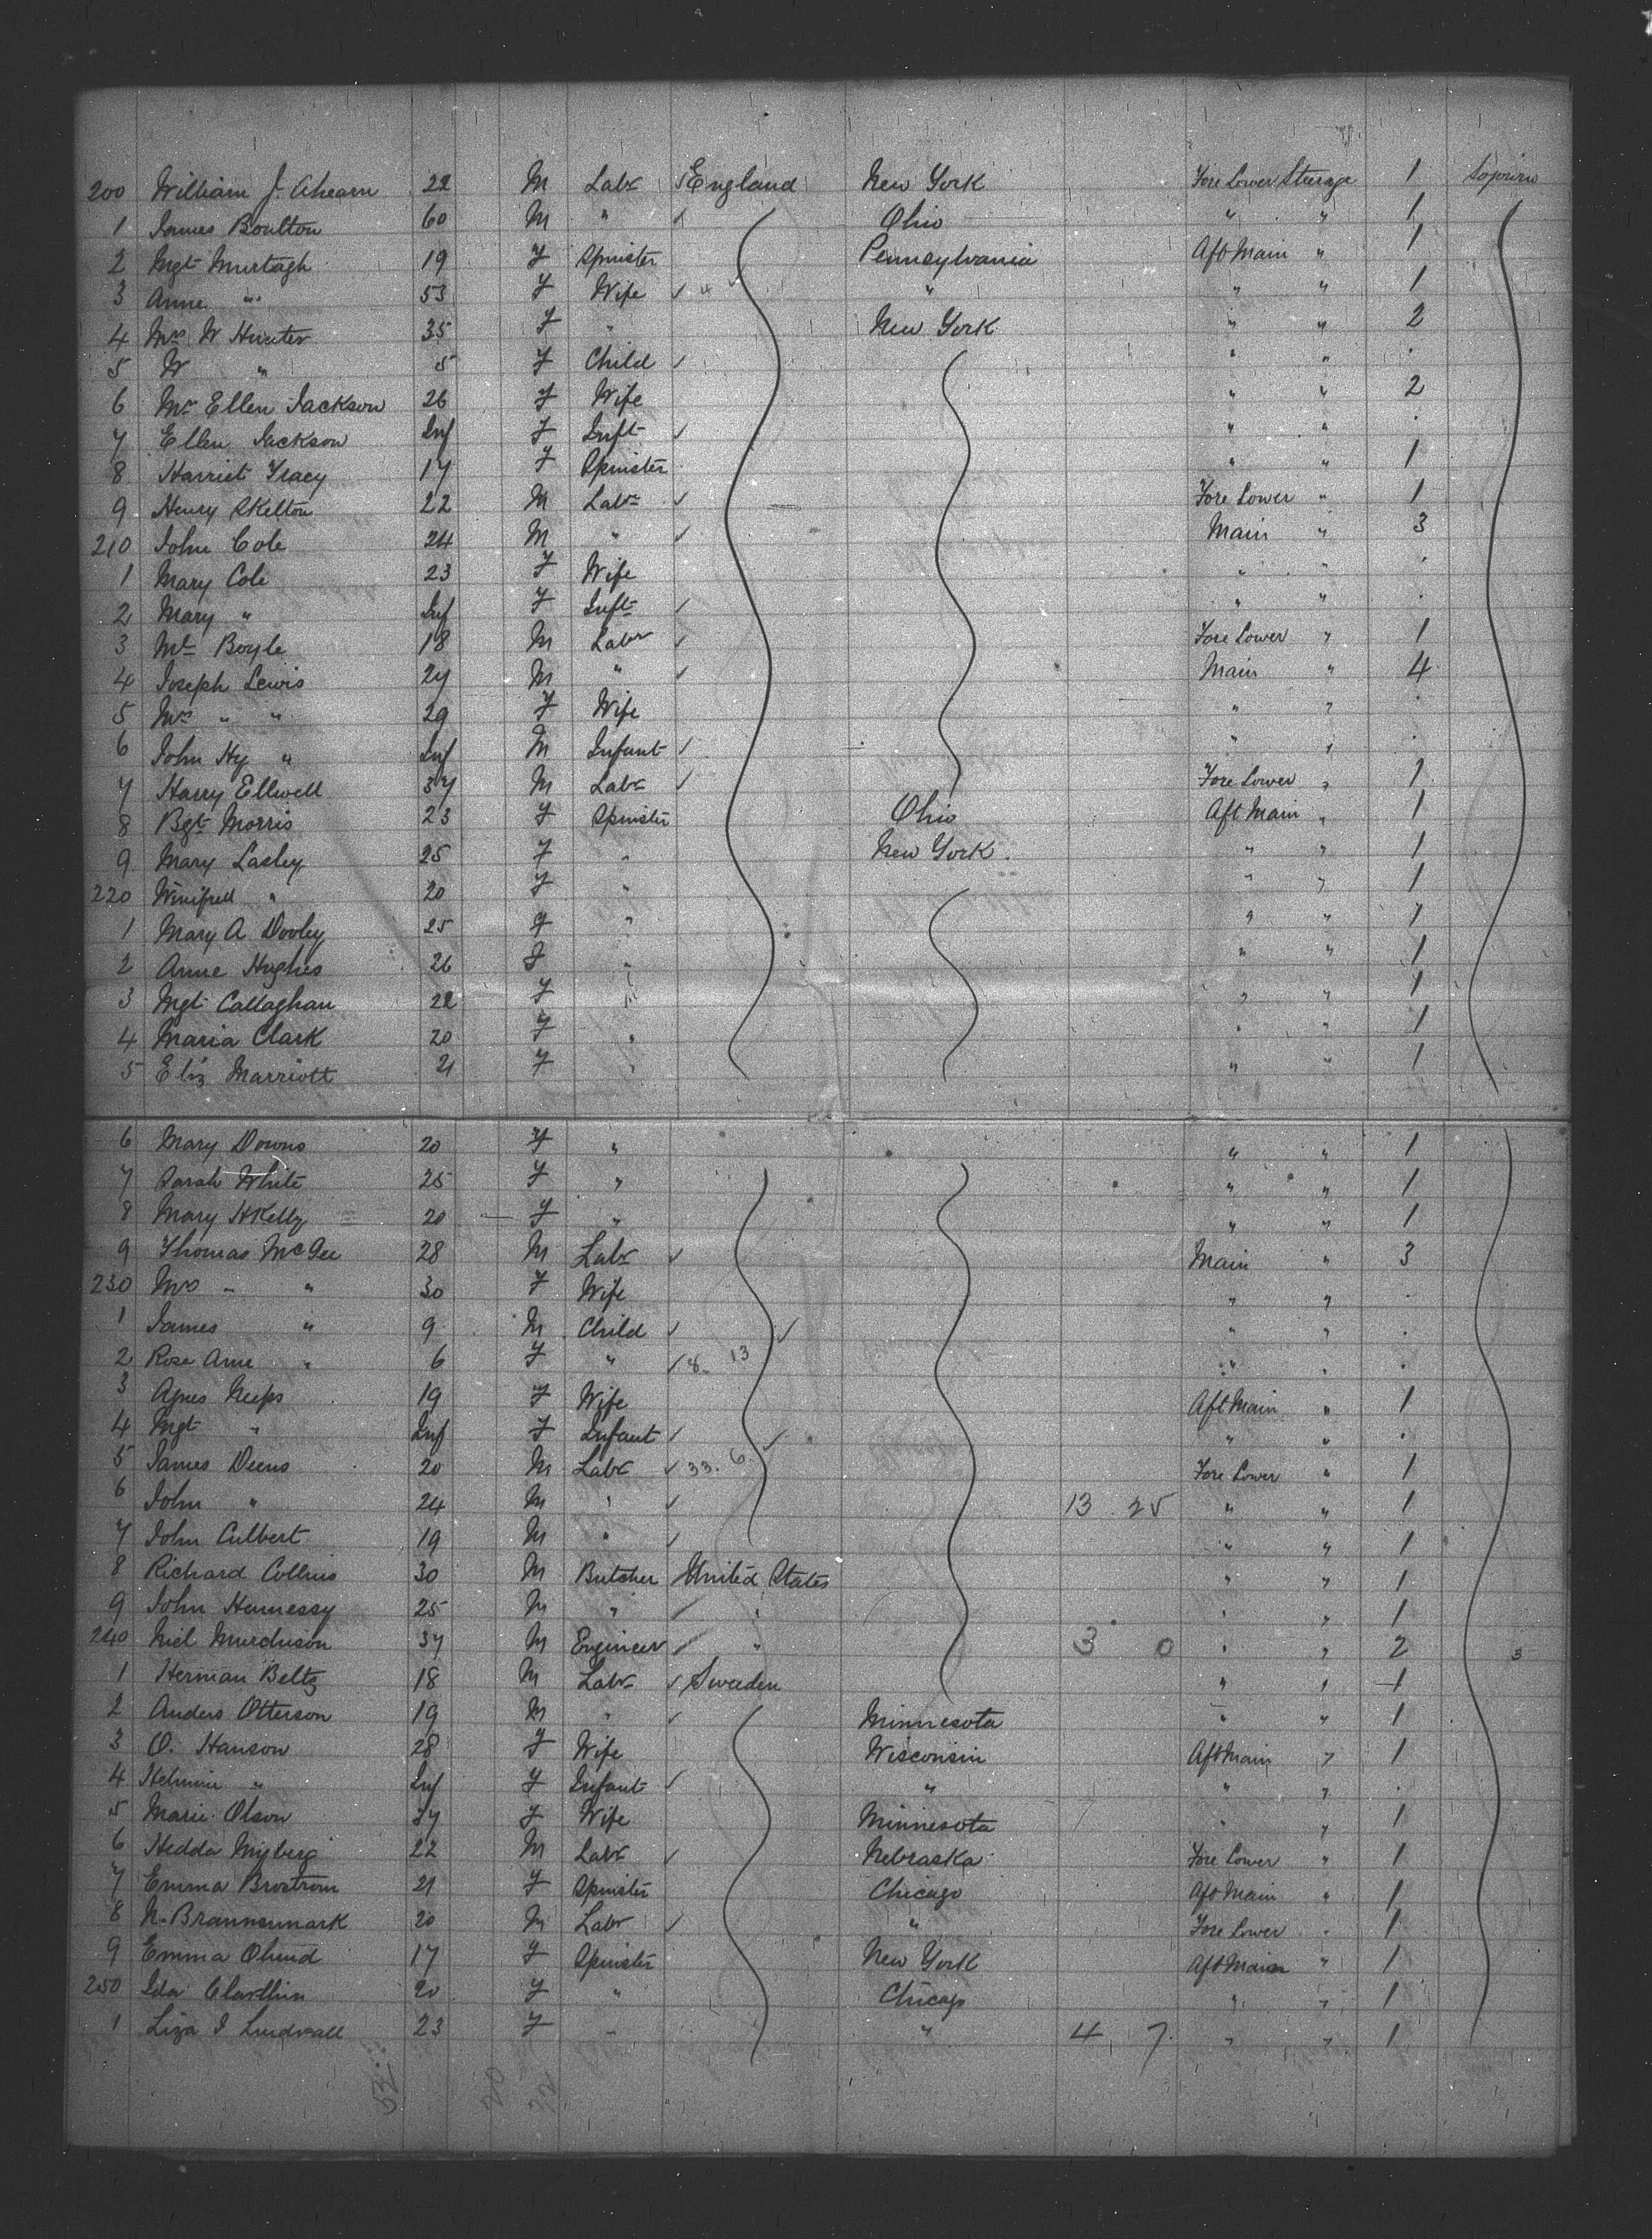 200 William J. Ahearn 22 M Labr England New York Fore Lower Steerage 1 Sojourn
1 James Boulton 60 M " Ohio " " 1
2 Mgt Murtagh 19 F Spinster Pennsylvania Aft Main " 1
3 Anne " 53 F Wife " " " 1
4 Mrs W Hunter 35 F " New York " " 2
5 W " 5 F Child " " .
6 Mrs Ellen Jackson 26 F Wife " " 2
7 Ellen Jackson Inf F Inft " " .
8 Harriet Tracy 17 F Spinster " " 1
9 Henry Skelton 22 M Labr Fore Lower " 1
210 John Cole 24 M " Main " 3
1 Mary Cole 23 F Wife " " .
2 Mary " Inf F Inft " " .
3 Boyle 18 M Labr Fore Lower " 1
4 Joseph Lewis 27 M " Main " 4
5 Mrs " " 29 F Wife " " .
6 John Hy " Inf M Infant " " .
7 Harry Ellwell 37 M Labr Fore Lower " 1
8 Bgt Morris 23 F Spinster Ohio Aft Main " 1
9 Mary 25 F " New York " " 1
220 Winifred " 20 F " " " 1
1 Mary A Dooley 25 F " " " 1
2 Anne Hughes 26 F " " " 1
3 Mgt Callaghan 22 F " " " 1
4 Maria Clark 20 F " " " 1
5 Eliz Marriott 21 F " " " 1
6 Mary Downs 20 F " " " 1
7 Sarah White 25 F " " " 1
8 Mary 20 F " " " 1
9 Thomas McGee 28 M Labr Main " 3
230 Mrs " " 30 F Wife " " .
1 James " 9 M Child " " .
2 Rose Anne " 6 F " 8 13 " " .
3 Agnes 19 F Wife Aft Main " 1
4 Mgt " Inf F Infant " " .
5 James Deens 20 M Labr 33. 6 Fore Lower " 1
6 John " 24 M " 13 25 " " 1
7 John Culbert 19 M " " " 1
8 Richard Collins 30 M Butcher United States " " 1
9 John Hennessy 25 M " " " " 1
240 Niel Murchison 37 M Engineer " 3 0 " " 2 3
1 Herman Beltz 18 M Labr Sweden " " 1
2 Anders Otterson 19 M " Minnesota " " 1
3 O. Hanson 28 F Wife Wisconsin Aft Main " 1
4 " Inf F Infant " " " .
5 Marie Olson 37 F Wife Minnesota " " 1
6 Hedda 22 M Labr Nebraska Fore Lower " 1
7 Emma Brostrom 21 F Spinster Chicago Aft Main " 1
8 N. Brannenmark 20 M Labr " Fore Lower " 1
9 Emma 17 F Spinster New York Aft Main " 1
250 Ida 20 F " Chicago " " 1
1 Liza I Lindvall 23 F " " 4 7 " " 1